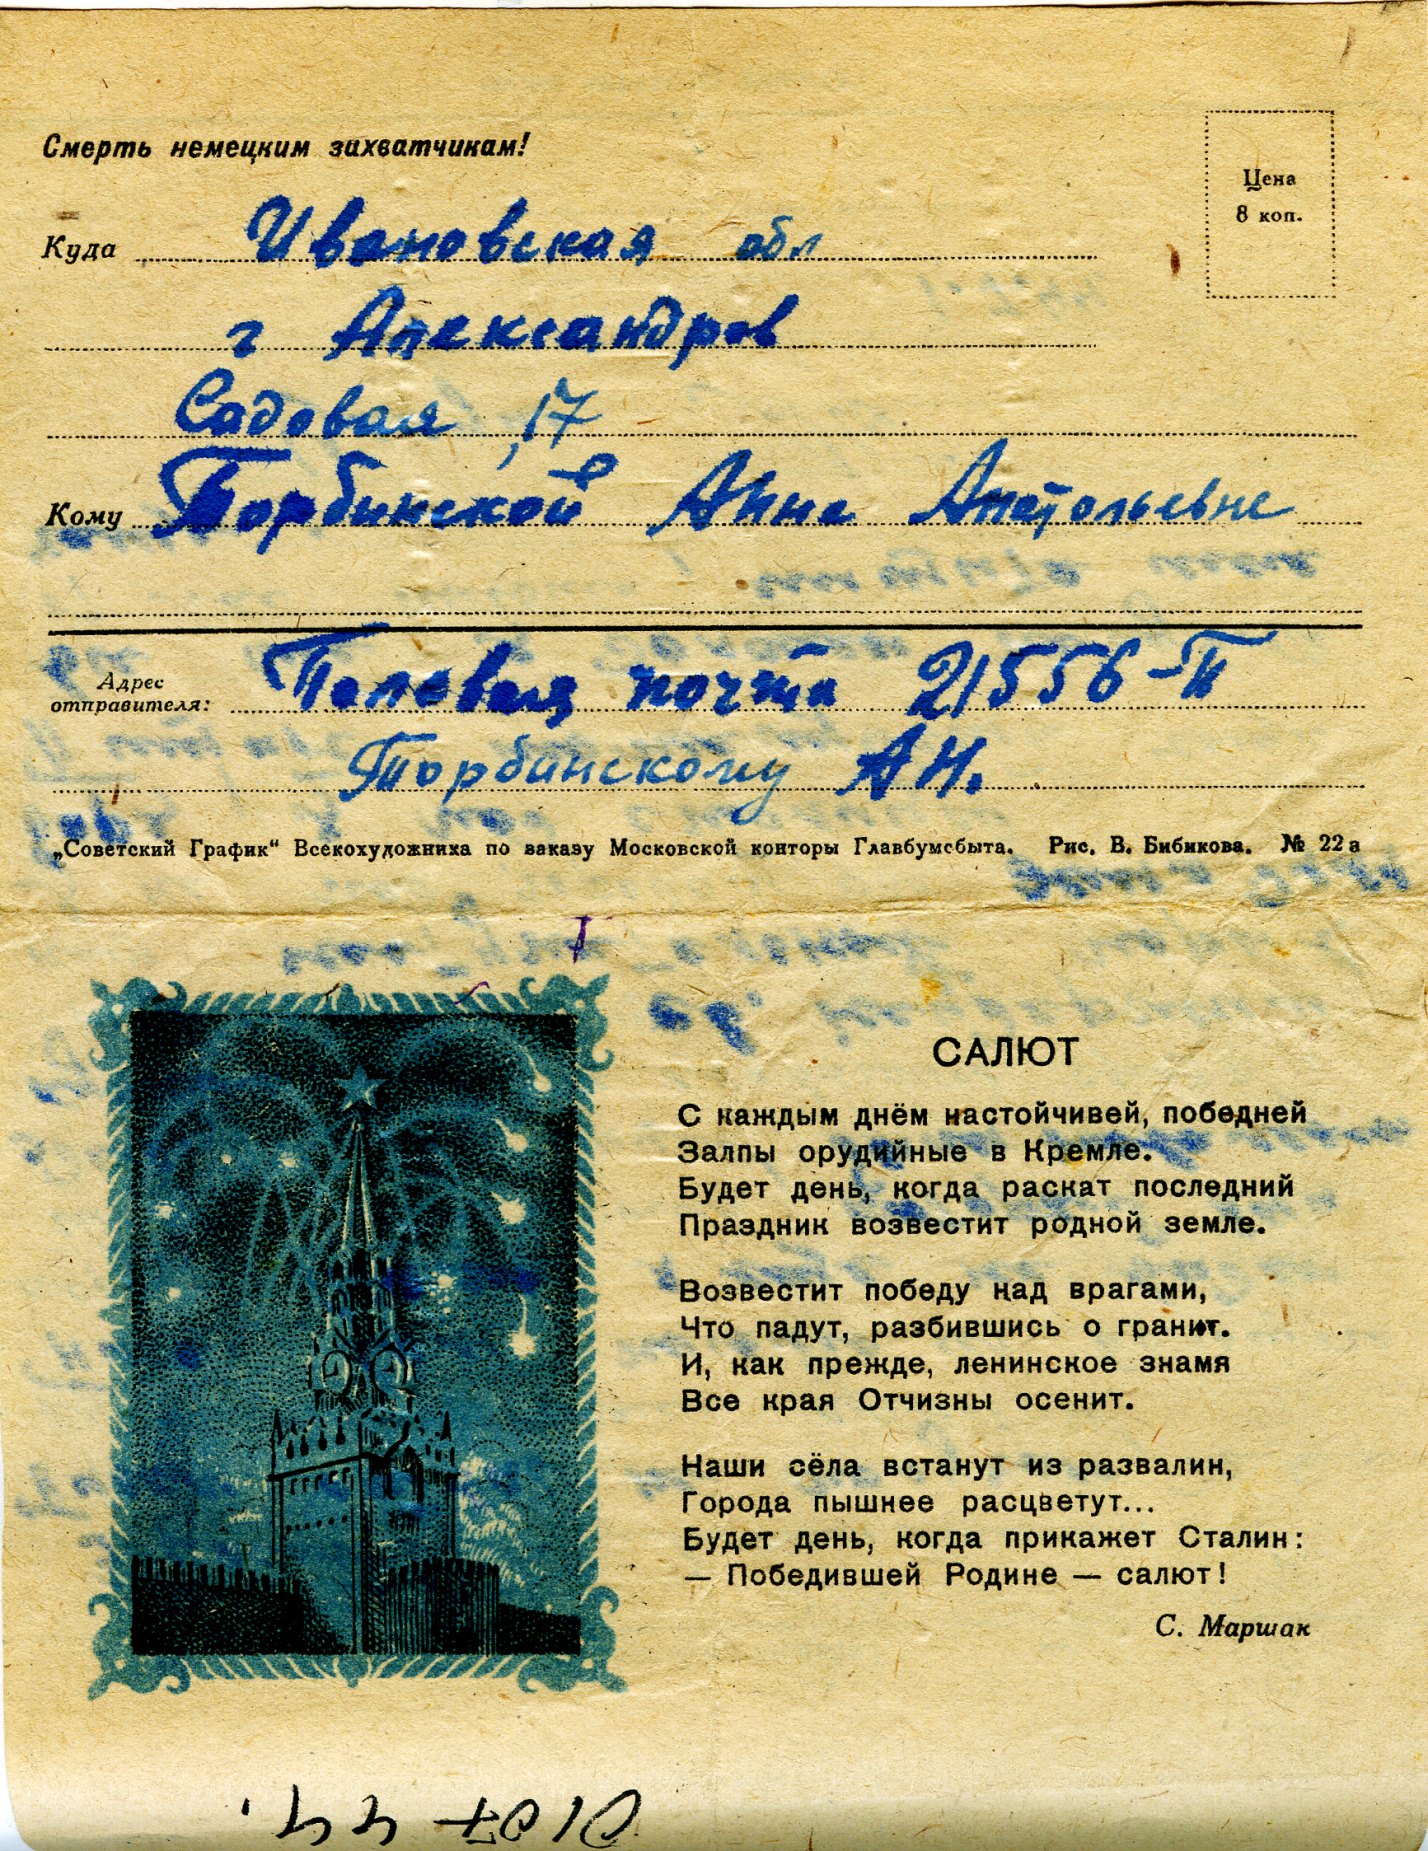 Смерть немецким захватчикам!
Цена
8 коп.
Куда Ивановская обл
г Александров
Садовая, 17
Кому Торбинской Анне Анатольевне
Адрес
отправителя: Полевая почта 21556-П
Торбинскому А Н.
„Советский График“ Всекохудожника по заказу Московской конторы Главбумсбыта. Рис. В. Бибикова. № 22а
САЛЮТ
С каждым днём настойчивей, победней
Залпы орудийные в Кремле.
Будет день, когда раскат последний
Праздник возвестит родной земле.
Возвестит победу над врагами,
Что падут, разбившись о гранит.
И, как прежде, ленинское знамя
Все края Отчизны осенит.
Наши сёла встанут из развалин,
Города пышнее расцветут...
Будет день, когда прикажет Сталин:
— Победившей Родине — салют!
С. Маршак
01 07 44.